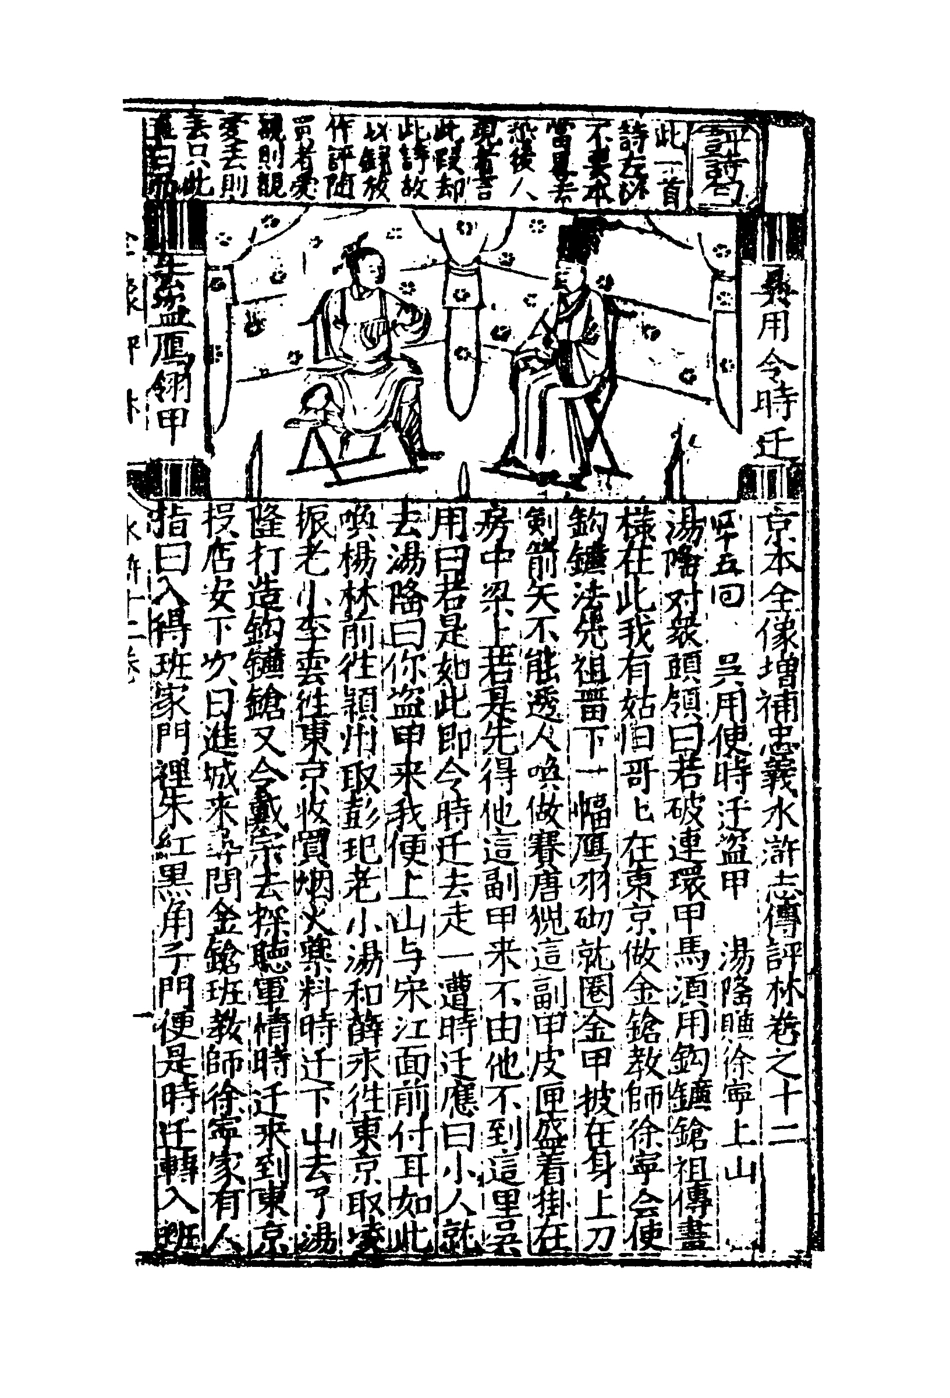 評詩句
此一首
詩左所
不妻本
當思去
恐後人
觀者言
此段却
此詩故
以錄放
作評随
買者愛
觀則觀
愛去則
丟只此
直曰而
吳用令時迁
去盜鴈翎甲
京本全像增補忠義水滸志傳評林卷之十二
四十五回 吳用使時迁盜甲 湯隆賺徐寧上山
湯隆对衆頭領曰若破連環甲馬須用鈎鐮鎗祖傳畫
樣在此我有姑旧哥匕在東京做金鎗教師徐寧会使
鈎鐮法先祖畱下一幅鴈翎砌就圈金甲披在身上刀
剣箭矢不能透人喚做賽唐猊這副甲皮匣盛着掛在
房中梁上若是先得他這副甲来不由他不到這里吳
用曰若是如此即令時迁去走一遭時迁應曰小人就
去湯隆曰你盜甲来我便上山与宋江面前付耳如此
喚楊林前徃潁州取彭玘老小湯和薛永徃東京取凌
振老小李雲徃東京收買烟火藥料時迁下山去了湯
隆打造鈎鐮鎗又令戴宗去探聽軍情時迁来到東京
投店安下次日進城来尋問金鎗班教師徐寧家有人
指曰入得班家門裡朱紅黑角子門便是時迁轉入班
全像評林
水滸十二卷